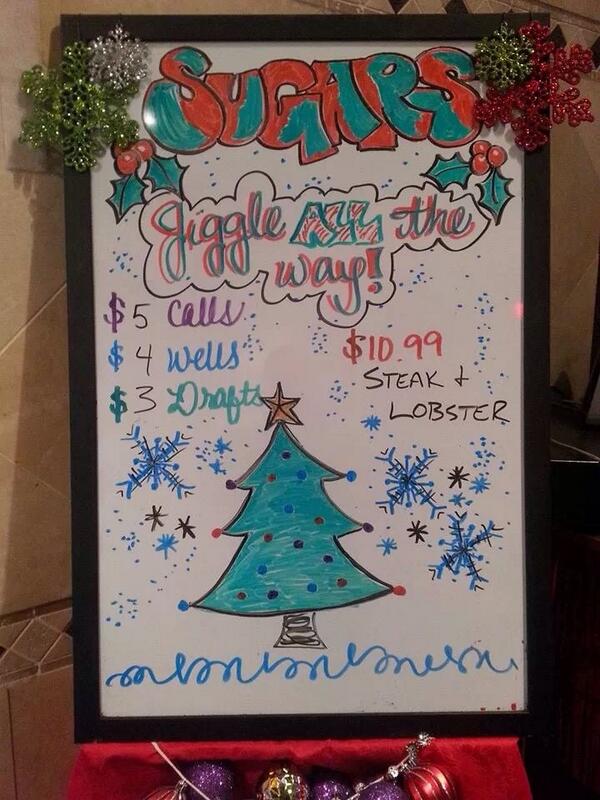 SUGARS
Jiggle ALL the
way!
$5 Calls
$4 Wells
$3 Drafts
$10.99
STEAK &
LOBSTER